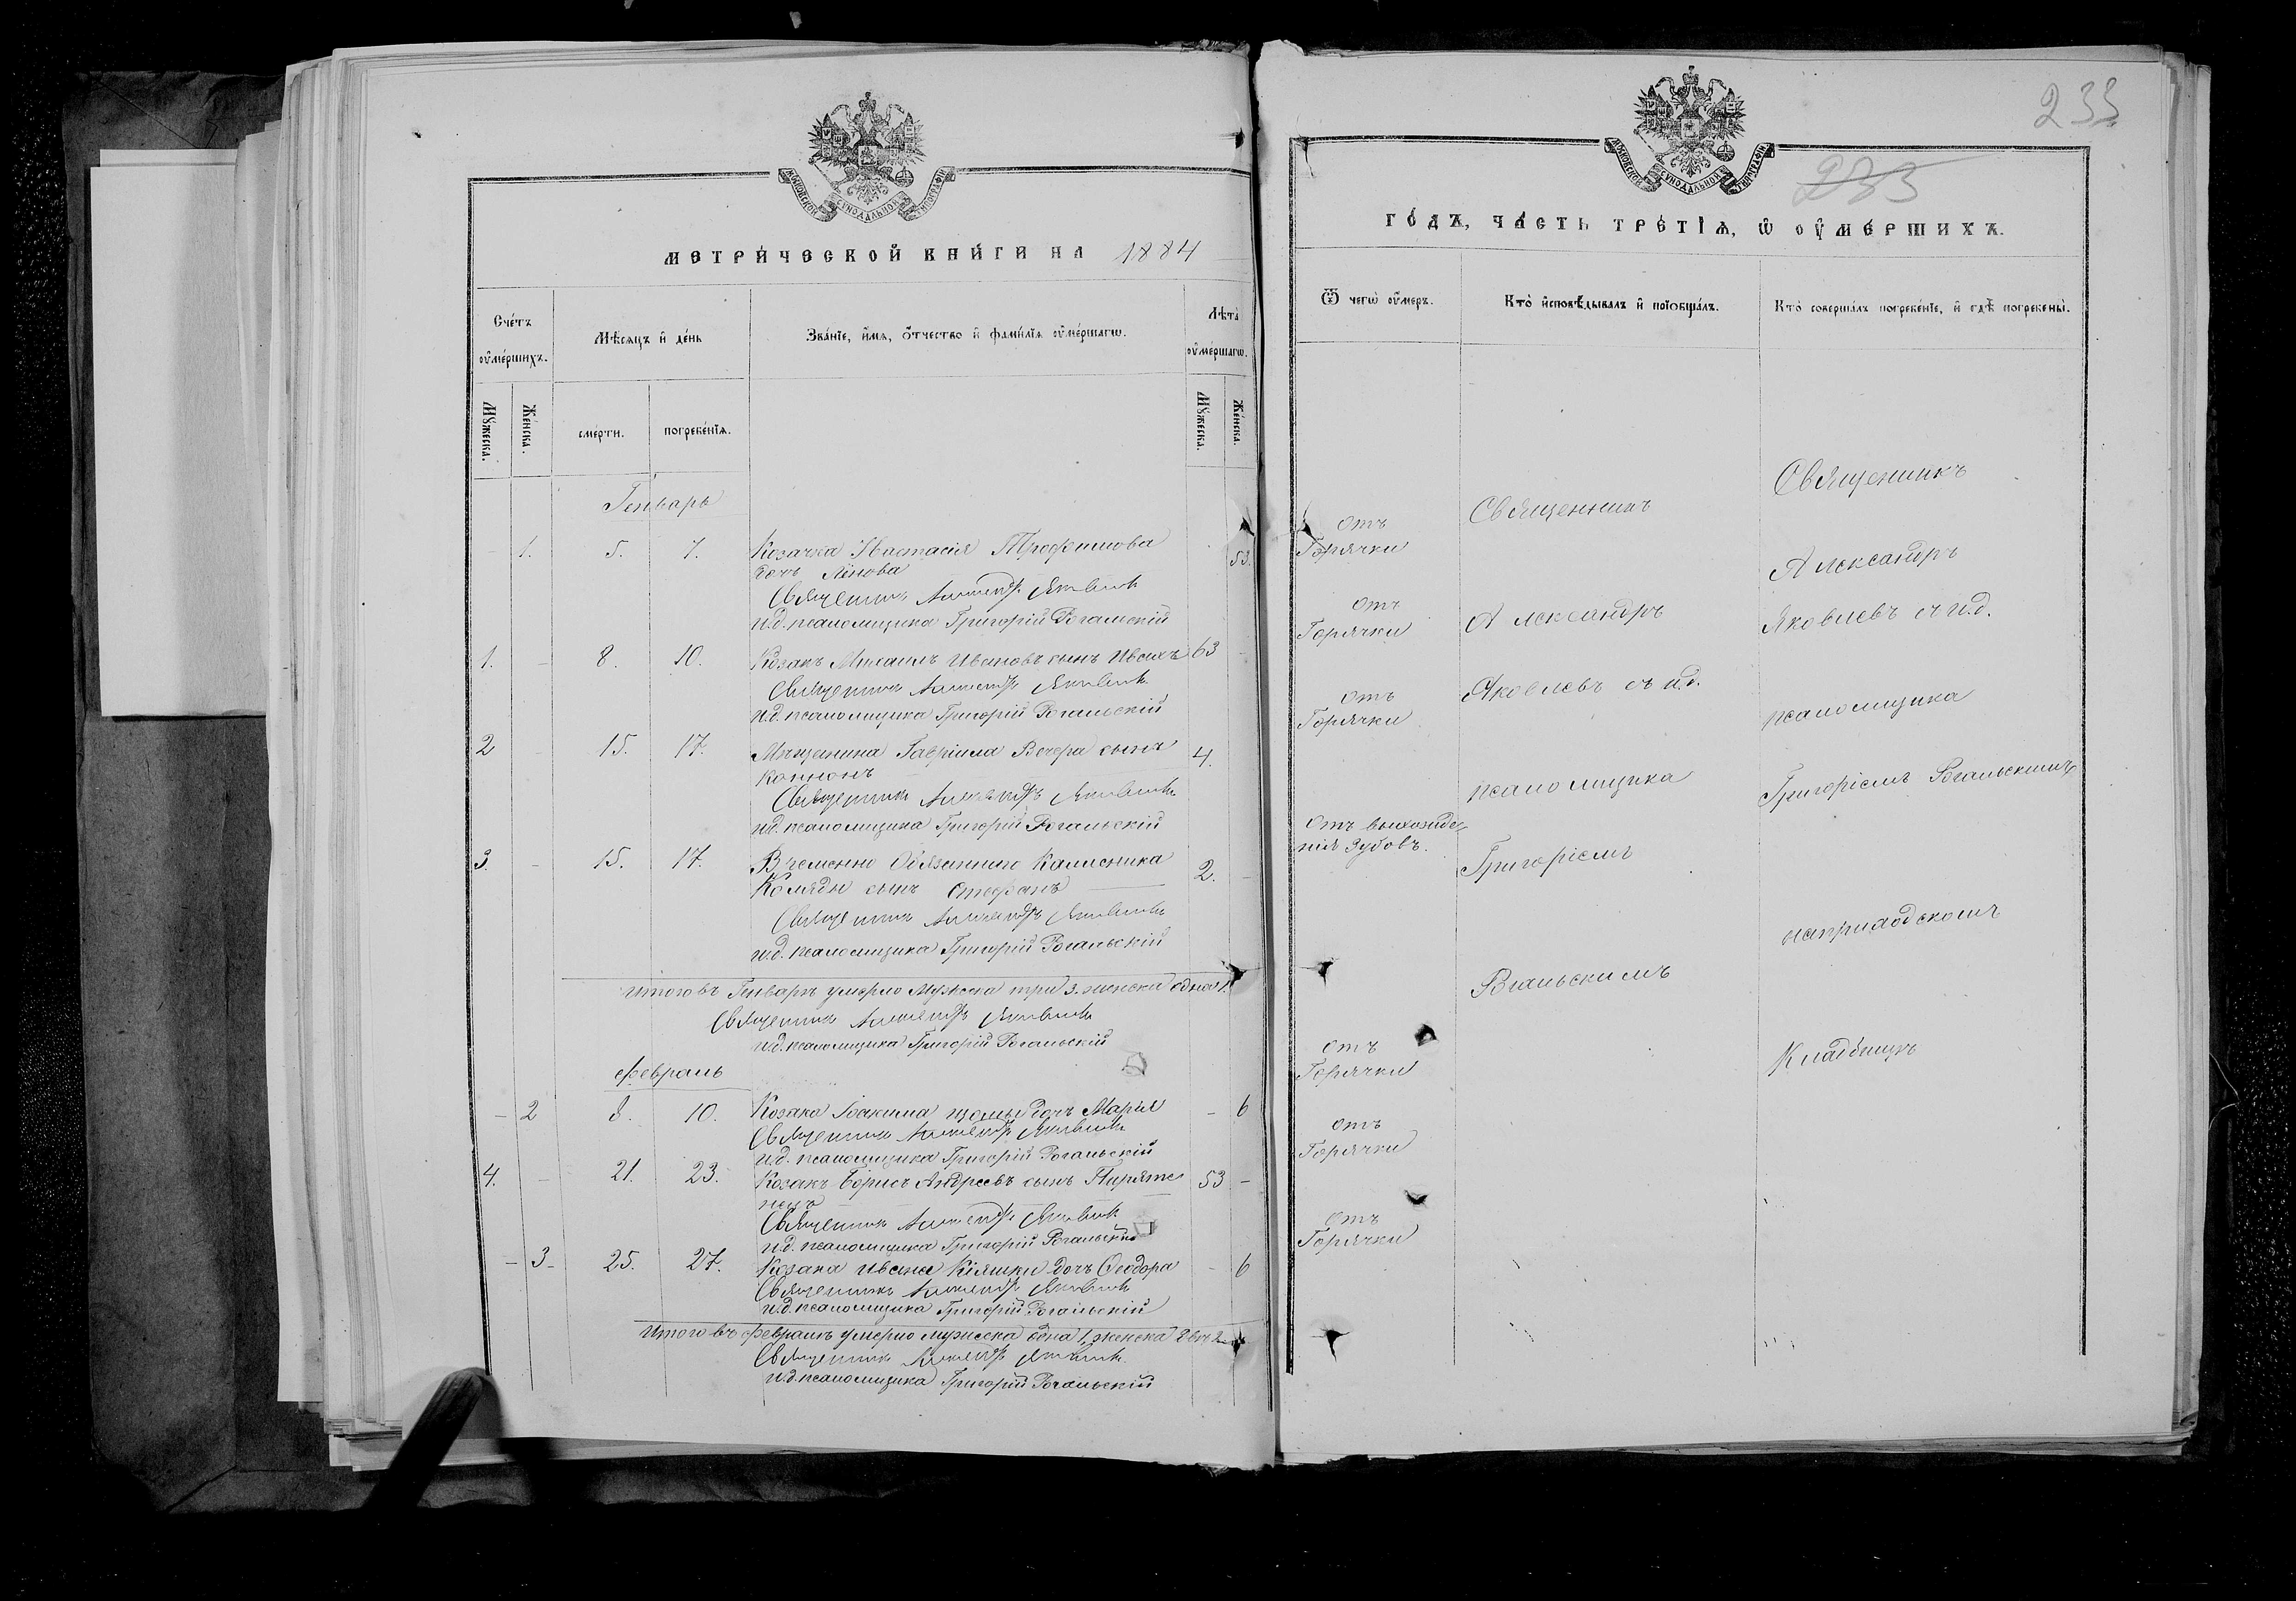 МОСКОВСКОЙ СУНОДАЛЬНОЙ ТИПОГРАФІИ
МЕТРИ́ЧЕСКОЙ КНИ́ГИ НА 1884
Сче́тъ ᲂу҆ме́ршихъ.
Мꙋ́жеска.
Же́нска.
Мѣ́сяцъ и҆ де́нь
сме́рти.
погребе́нїѧ.
Зва́нїе, и҆́мѧ, ѻ҆́тчество и҆ фами́лїѧ ᲂу҆ме́ршагѡ.
Лѣ́та ᲂу҆ме́ршагѡ.
Мꙋ́жеска.
Же́нска.
Генварь
- 1. 5. 7. Козачка Настасія Трофимова 53.
дочь Лѣнова
Священникъ Александръ Яковлевъ
и.д. псаломщика Григорій Рогальскій
1. - 8. 10. Козакъ Михаилъ Ивановъ сынъ Ивахъ 63 -
Священникъ Александръ Яковлевъ
и.д. псаломщика Григорій Рогальскій
2 - 15. 17. Мѣщанина Гавріила Вечера сынъ 4.
Кононъ
Священникъ Александръ Яковлевъ
и.д. псаломщика Григорій Рогальскій
3. - 15. 17. Временно Обязаннаго Калленика 2. -
Коляды сынъ Стефанъ
Священникъ Александръ Яковлевъ
и.д. псаломщика Григорій Рогальскій
Итого въ Генварѣ умерло Мужеска три 3. женска одна 1.
Священникъ Александръ Яковлевъ
и.д. псаломщика Григорій Рогальскій
Февраль
- 2 8. 10. Козака Іоакима дочь Марія - 6
Священникъ Александръ Яковлевъ
и.д. псаломщика Григорій Рогальскій
4. - 21. 23. Козакъ Борисъ Андреевъ сынъ Пиряти 53 -
нецъ
Священникъ Александръ Яковлевъ
и.д. псаломщика Григорій Рогальскій
- 3 - 25. 27. Козака Ивана Кіяшки дочь Ѳеодора - 6
Священникъ Александръ Яковлевъ
и.д. псаломщика Григорій Рогальскій
Итого въ Февралѣ умерло мужеска одна 1, женска двѣ 2
Священникъ Александръ Яковлевъ
и.д. псаломщика Григорій Рогальскій
233
233
МОСКОВСКОЙ СУНОДАЛЬНОЙ ТИПОГРАФІИ
ГО́ДЪ, ЧА́СТЬ ТРЕ́ТІѦ, Ѡ҆ ОУ҆МЕ́РШИХЪ.
Ѿ чегѡ̀ ᲂу҆́меръ.
Кто̀ и҆сповѣ́дывалъ и҆ прїѻбща́лъ.
Кто̀ соверша́лъ погребе́нїе, и҆ гдѣ̀ погребены̀.
Отъ
Горячки
Отъ
Горячки
Отъ
Горячки
Отъ выхожде
нія зубовъ.
Отъ
Горячки
Отъ
Горячки
Отъ
Горячки
Священникъ
Александръ
Яковлевъ съ и.д.
псаломщика
Григоріемъ
Рогальскимъ
Священникъ
Александръ
Яковлевъ съ и.д.
псаломщика
Григоріемъ Рогальскимъ
на приходскомъ
Кладбищѣ